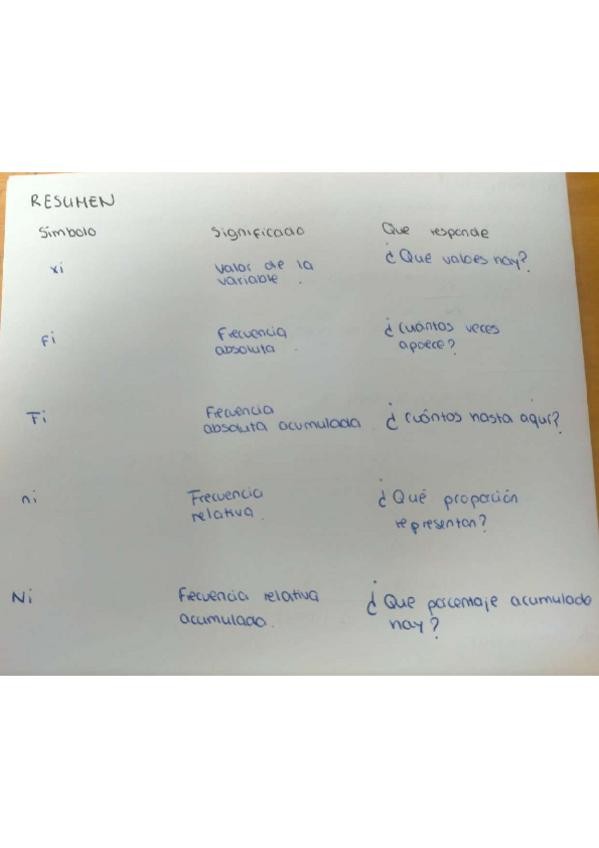 RESUMEN
Símbolo Significado Que responde
xi valor de la variable. ¿Que valores hay?
fi Frecuencia absoluta. ¿Cuántas veces aparece?
Fi Frecuencia absoluta acumulada ¿Cuántos hasta aquí?
ni Frecuencia relativa. ¿Qué proporción representan?
Ni Frecuencia relativa acumulado. ¿Que porcentaje acumulado hay?